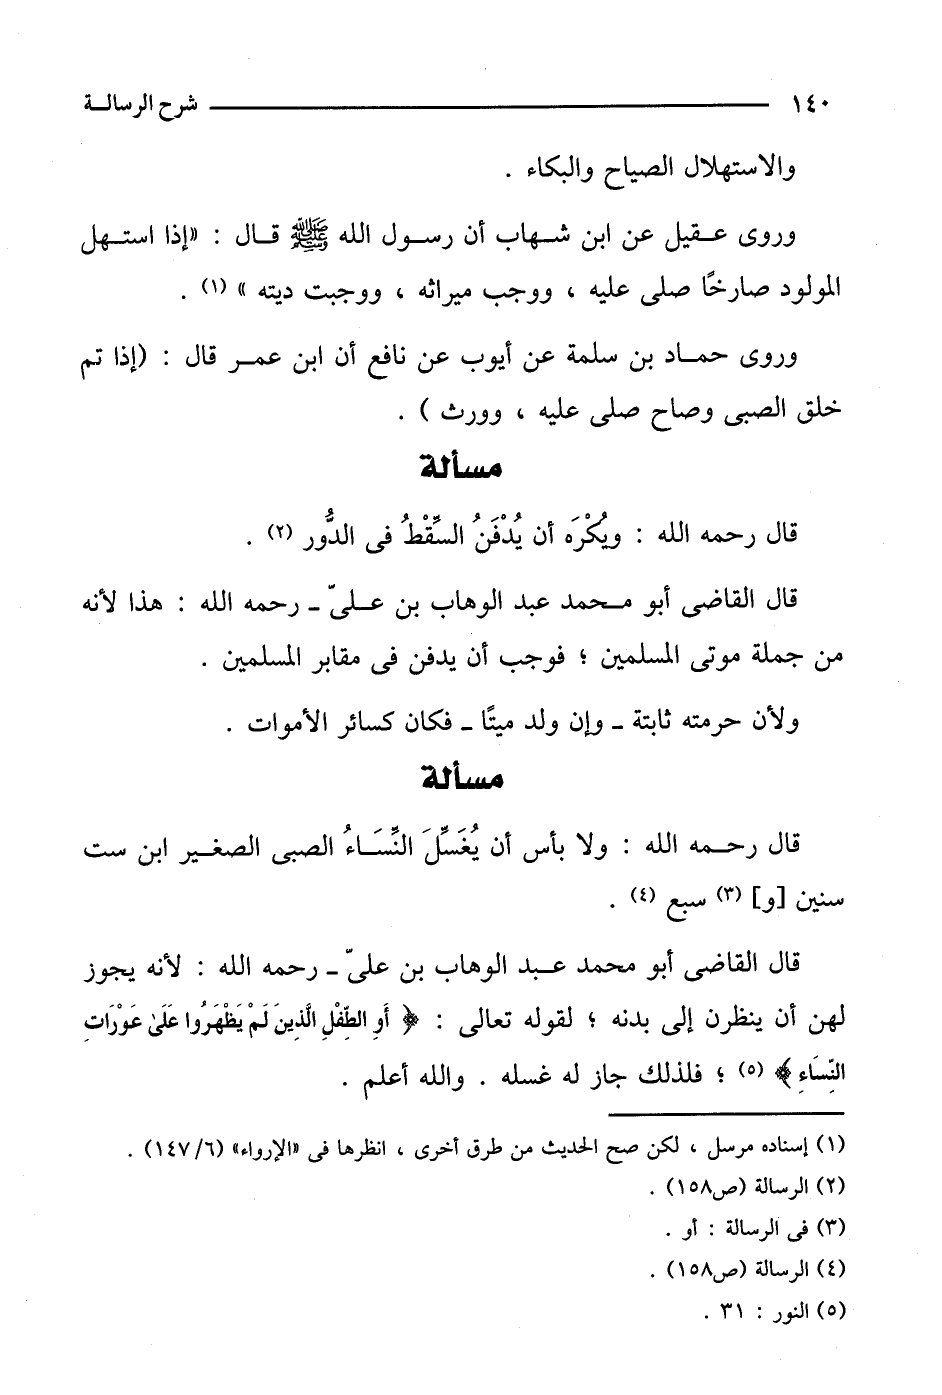 ١٤٠ شرح الرسالة
والاستهلال الصياح والبكاء .
وروى عقيل عن ابن شهاب أن رسول الله ﷺ قال : «إذا استهل
المولود صارخًا صلى عليه ، ووجب ميراثه ، ووجبت ديته » (١) .
وروى حماد بن سلمة عن أيوب عن نافع أن ابن عمر قال : (إذا تم
خلق الصبى وصاح صلى عليه ، وورث ) .
مسألة
قال رحمه الله : ويُكْرَه أن يُدْفَنُ السِّقْطُ فى الدُّور (٢) .
قال القاضى أبو محمد عبد الوهاب بن علىّ ـ رحمه الله : هذا لأنه
من جملة موتى المسلمين ؛ فوجب أن يدفن فى مقابر المسلمين .
ولأن حرمته ثابتة ـ وإن ولد ميتًا ـ فكان كسائر الأموات .
مسألة
قال رحمه الله : ولا بأس أن يُغَسِّلَ النِّسَاءُ الصبى الصغير ابن ست
سنين [و] (٣) سبع (٤) .
قال القاضى أبو محمد عبد الوهاب بن علىّ ـ رحمه الله : لأنه يجوز
لهن أن ينظرن إلى بدنه ؛ لقوله تعالى : ﴿ أَوِ الطِّفْلِ الَّذِينَ لَمْ يَظْهَرُوا عَلَىٰ عَوْرَاتِ
النِّسَاءِ ﴾ (٥) ؛ فلذلك جاز له غسله . والله أعلم .
(١) إسناده مرسل ، لكن صح الحديث من طرق أخرى ، انظرها فى «الإرواء» (١٤٧/٦) .
(٢) الرسالة (ص١٥٨) .
(٣) فى الرسالة : أو .
(٤) الرسالة (ص١٥٨) .
(٥) النور : ٣١ .